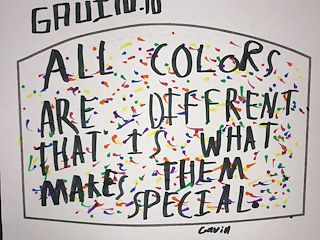 GAVIN.10
ALL COLORS
ARE DIFFRENT
THAT IS WHAT
MAKES THEM
SPECIAL.
Gavin